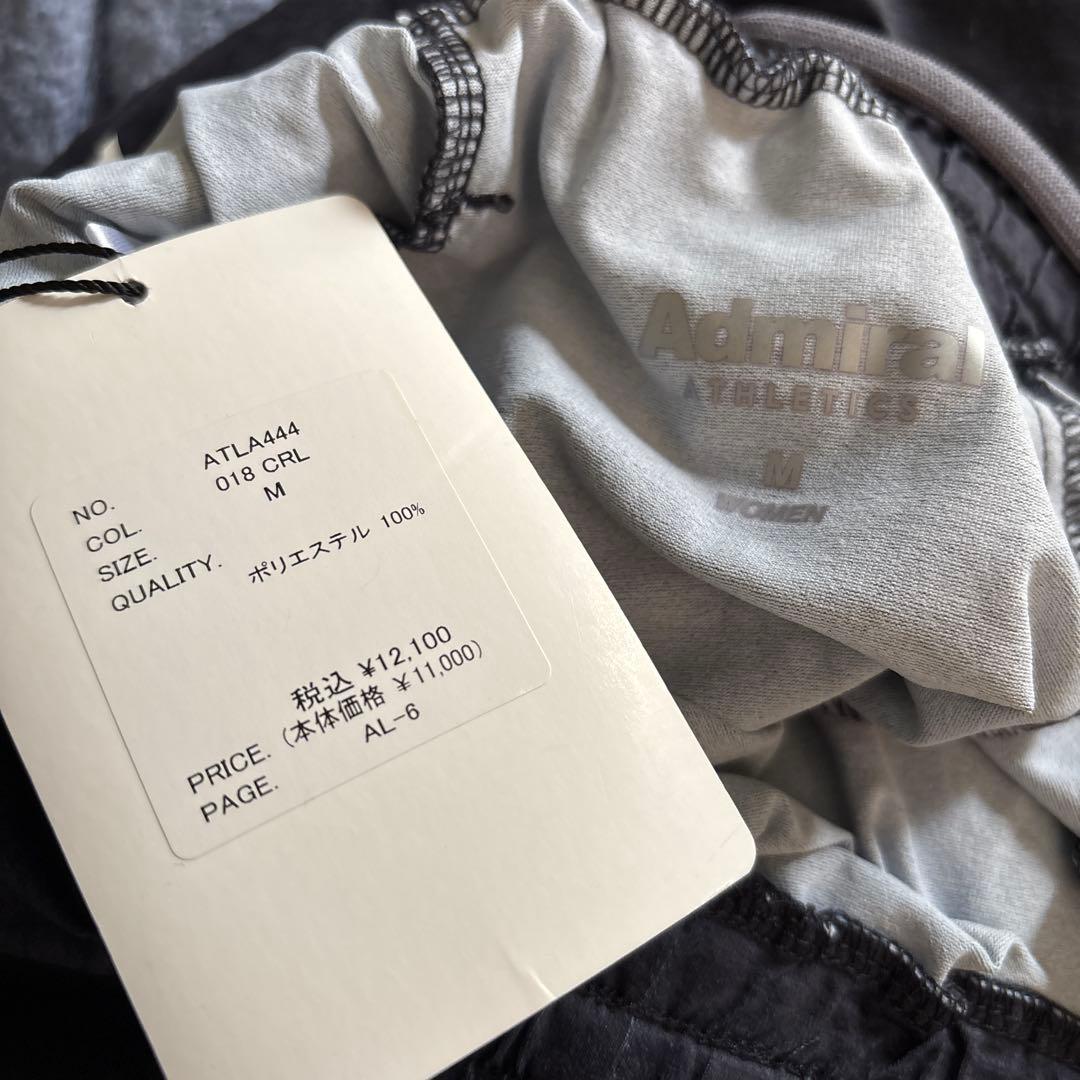 NO. ATLA444
COL. 018 CRL
SIZE. M
QUALITY. ポリエステル 100%
税込 ¥12,100
PRICE. (本体価格 ¥11,000)
PAGE. AL-6
Admiral
ATHLETICS
M
WOMEN